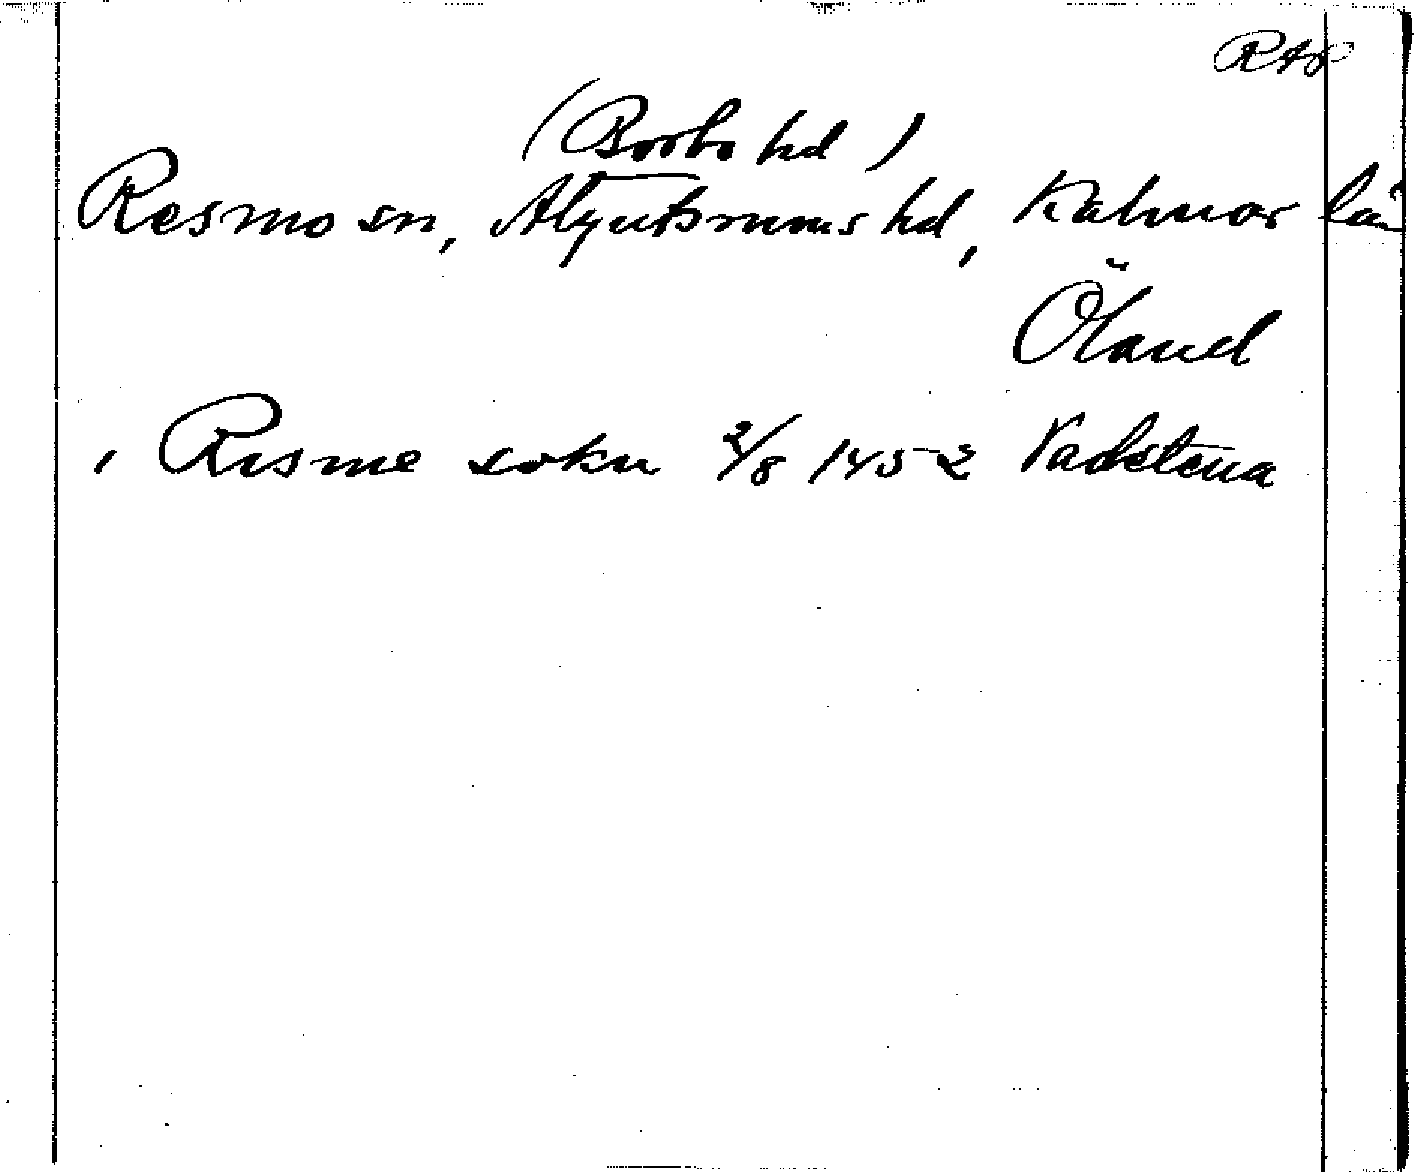 RAp
(Borbo hd)
Resmo sn, Algutsrums hd, Kalmar län
Öland
i Risme sokn 2/8 1452 Vadstena